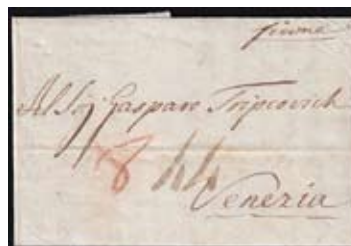 fiume
Al Sig Gaspare Tripcovich
8 44
Venezia